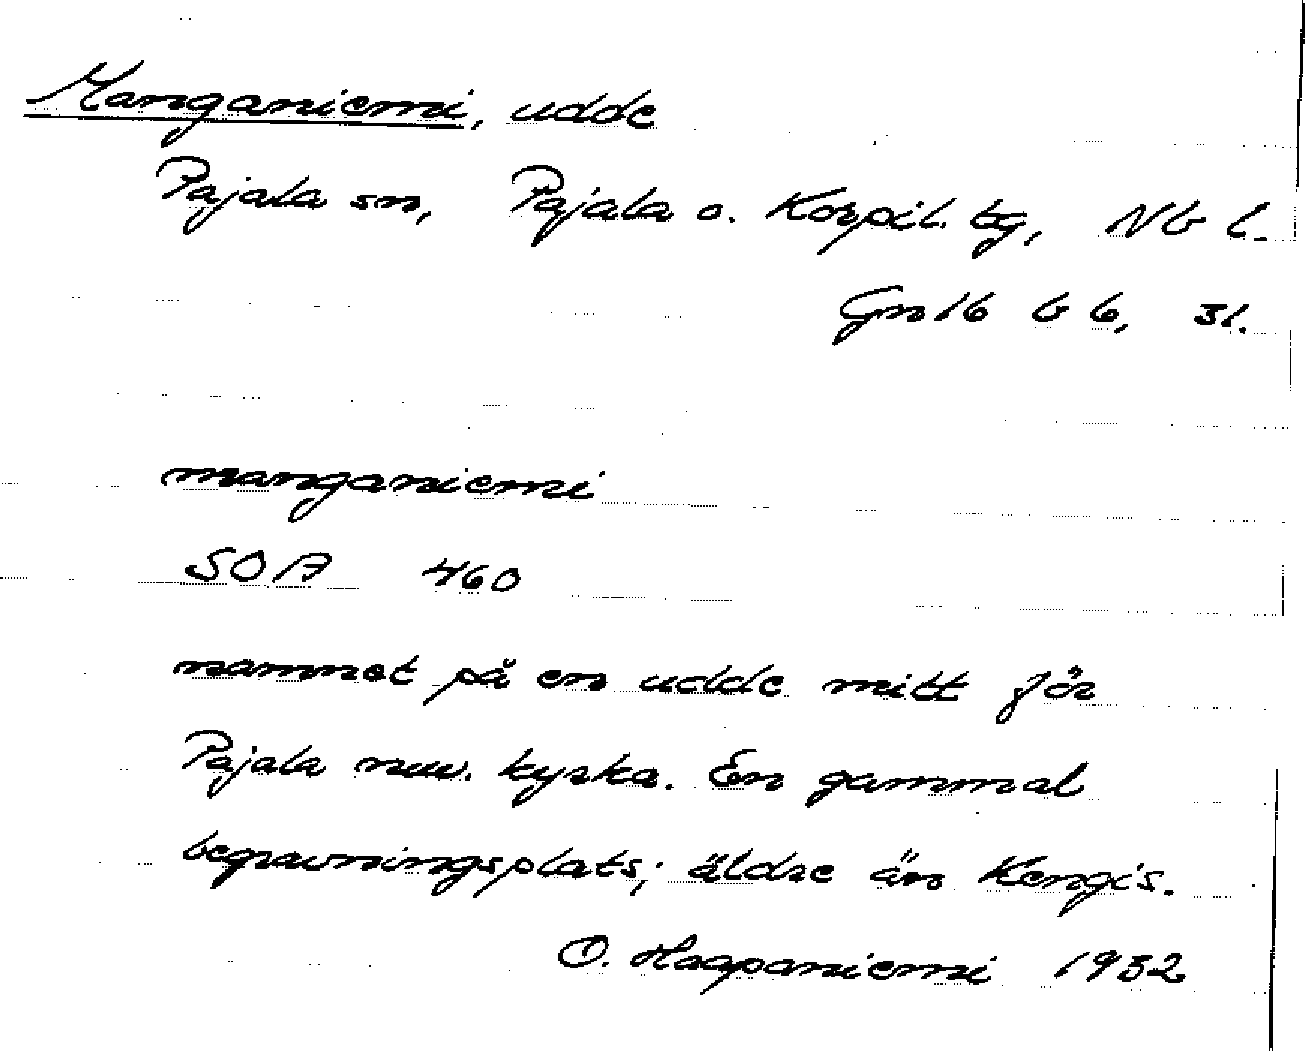 Manganiemi, udde
Pajala sn, Pajala o. Korpil. tg, Nb l.
Gn 16 b 6, 31.
manganiemi
SOA 460
namnet på en udde mitt för
Pajala nuv. kyrka. En gammal
begravningsplats; äldre än Kengis.
O. Haapaniemi 1932